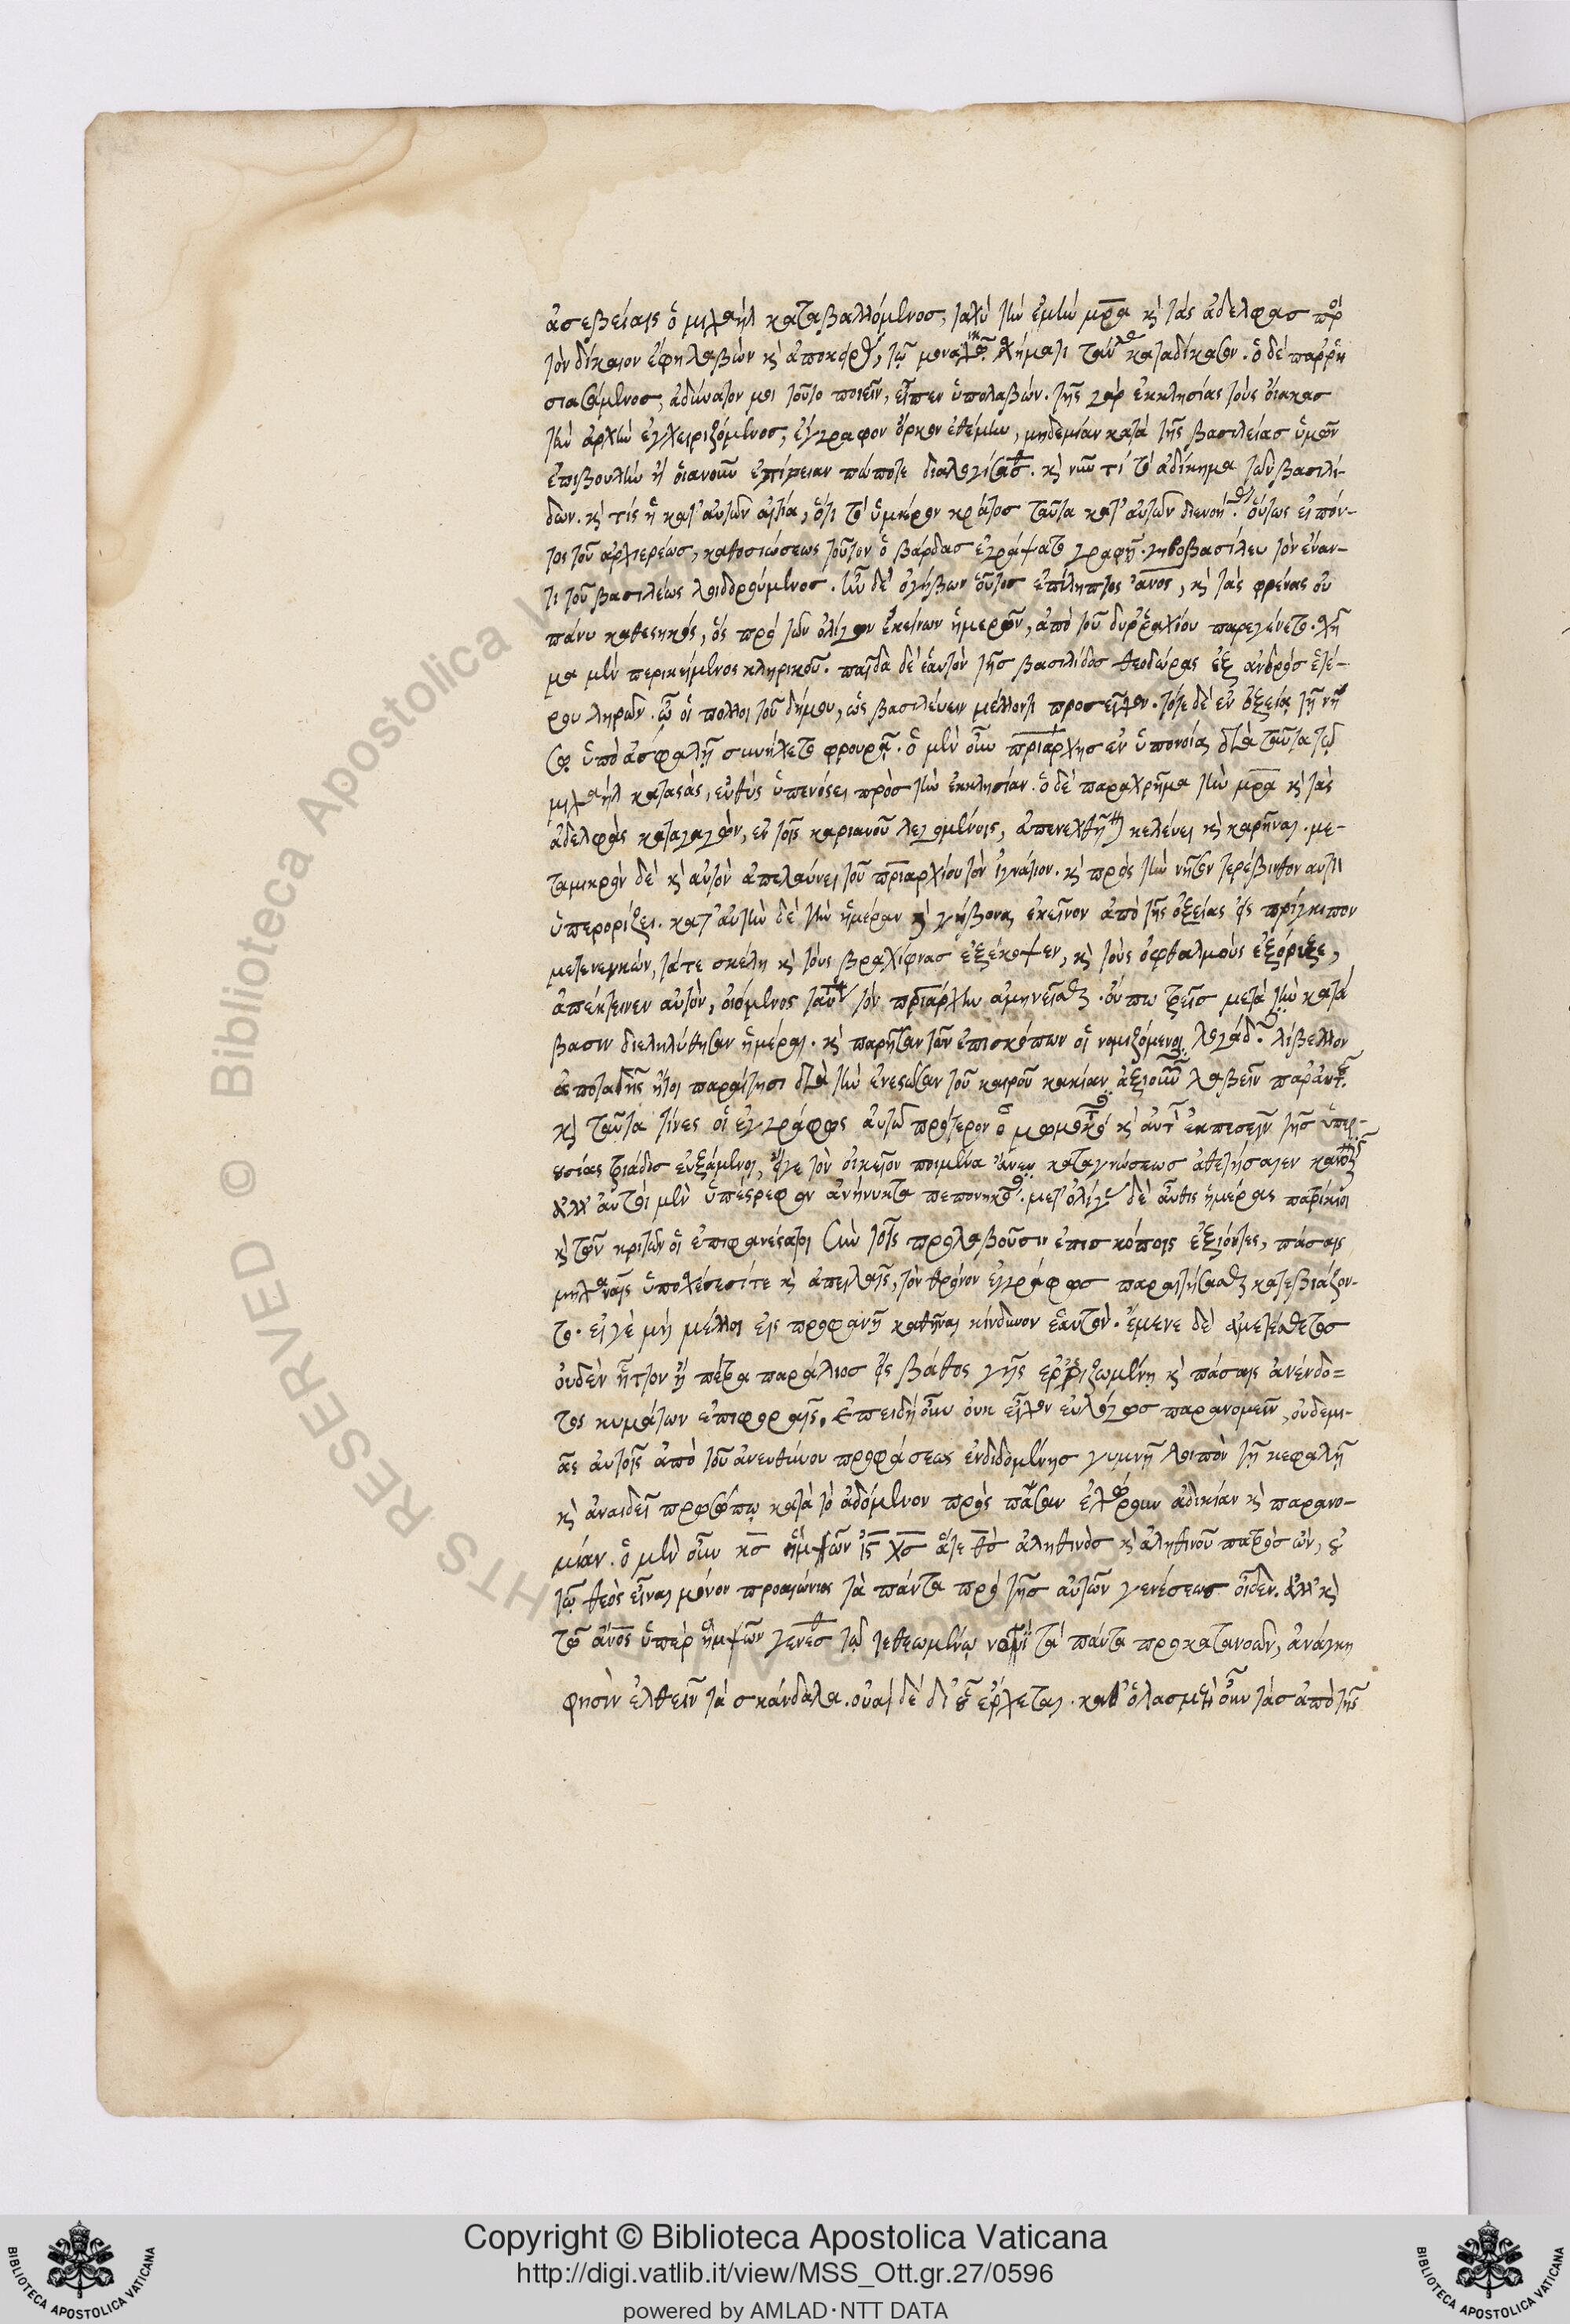 ἀσεβείαις ὁ μιχαὴλ καταβαλλόμενος, ταχὺ τὴν ἐμὴν μρα κὶ τὰς ἀδελφὰς πρ
τὸν δίκαιον ἔφη λαβὼν κὶ ἀποκείρας, τῷ μοναχικῷ σχήματι ταύτας καταδίκασον. ὁ δὲ παρρη
σιασάμενος, ἀδύνατόν μοι τοῦτο ποιεῖν, εἶπεν ὑπολαβών. τῆς γὰρ ἐκκλησίας τοὺς οἴακας
τὴν ἀρχὴν ἐγχειριζόμενος, ἔγγραφον ὅρκον ἐθέμην, μηδεμίαν κατὰ τῆς βασιλείας ὑμῶν
ἐπιβουλὴν ἢ οἱανοῦν ἐπήρειαν πώποτε διαλογίσασθαι. κὶ νῦν τί τὸ ἀδίκημα τῶν βασιλί-
δων. κὶ τίς ἡ κατ' αὐτῶν αἰτία, ὅτι τὸ ὑμέτερον κράτος ταῦτα κατ' αὐτῶν διενοήθη. οὕτως εἰπόν-
τος τοῦ ἀρχιερέως, καθοσιώσεως τοῦτον ὁ βάρδας ἐγράψατο γραφῇ. γηβοβασίλευτον ἔναν-
τι τοῦ βασιλέως λοιδορούμενος. ἦν δὲ ὁ γήβων οὗτος ἐπίληπτος ἄνος, κὶ τὰς φρένας οὐ
πάνυ καθεστηκώς, ὃς πρὸ τῶν ὀλίγων ἐκείνων ἡμερῶν, ἀπὸ τοῦ δυρραχίου παρεγένετο. σχῆ
μα μὲν περικείμενος κληρικοῦ. παῖδα δὲ ἑαυτὸν τῆς βασιλίδος θεοδώρας ἐξ ἀνδρὸς ἑτέ-
ρου ληρῶν. ᾧ οἱ πολλοὶ τοῦ δήμου, ὡς βασιλεύειν μέλλοντι προσεῖχον. τότε δὲ ἐν ὀξείᾳ τῇ νή
σῳ ὑπὸ ἀσφαλῆ συνήχετο φρουράν. ὁ μὲν οὖν πριάρχης ἐν ὑπονοίᾳ διὰ ταῦτα τῷ
μιχαὴλ καταστάς, εὐθὺς ὑπενόσει πρὸς τὴν ἐκκλησίαν. ὁ δὲ παραχρῆμα τὴν μρα κὶ τὰς
ἀδελφὰς καταγαγών, ἐν τοῖς καριανοῦ λεγομένοις, ἀπενεχθῆναι κελεύει κὶ καρῆναι. με-
ταμικρὸν δὲ κὶ αὐτὸν ἀπελαύνει τοῦ πριαρχίου τὸν ἰγνάτιον. κὶ πρὸς τὴν νῆσον τερέβινθον αὐτὸν
ὑπερορίζει. κατ' αὐτὴν δὲ τὴν ἡμέραν κὶ γήβονα ἐκεῖνον ἀπὸ τῆς ὀξείας εἰς πρίγκιπον
μετενεγκών, τά τε σκέλη κὶ τοὺς βραχίονας ἐξέκοψεν, κὶ τοὺς ὀφθαλμοὺς ἐξόριξε,
ἀπέκτεινεν αὐτόν, οἰόμενος ταύτῃ τὸν πριάρχην ἀμύνεσθαι. οὔπω τρεῖς μετὰ τὴν κατά
βασιν διεληλύθησαν ἡμέραι. κὶ παρῆσαν τῶν ἐπισκόπων οἱ νομιζόμενοι λογάδες. λίβελλον
ἀποταγῆς ἤτοι παραίτησι διὰ τὴν ἐνεστῶσαν τοῦ καιροῦ κακίαν ἀξιοῦντες λαβεῖν παρ' αὐτοῦ.
κὶ ταῦτα τινὲς οἱ ἐγγράφως αὐτῷ πρότερον ὀμωμοκότες κὶ αὐτῆς ἐκπεσεῖν τῆς ὑπερ-
ουσίας τριάδος εὐξάμενοι, εἴγε τὸν οἰκεῖον ποιμένα ἄνευ καταγνώσεως ἀθετήσαιεν κανονικῆς
ἀλλ' αὐτοὶ μὲν ὑπέστρεφον ἀνήνυτα πεπονηκότες. μετ' ὀλίγας δὲ αὖθις ἡμέρας πατρίκιοι
κὶ τῶν κριτῶν οἱ ἐπιφανέστατοι σὺν τοῖς προλαβοῦσιν ἐπισκόποις ἐξιόντες, πάσαις
μηχαναῖς ὑποσχέσεσί τε κὶ ἀπειλαῖς, τὸν θρόνον ἐγγράφως παραιτήσασθαι κατεβιάζον-
το. εἴγε μὴ μέλλοι εἰς προφανῆ καθῆναι κίνδυνον ἑαυτόν. ἔμενε δὲ ἀμετάθετος
οὐδὲν ἧττον ἢ πέτρα παράλιος εἰς βάθος γῆς ἐρριζωμένη κὶ πάσαις ἀνένδο=
τος κυμάτων ἐπιφοραῖς. ἐπειδὴ οὖν οὐκ εἶχον εὐλόγως παρανομεῖν, οὐδεμι-
ᾶς αὐτοῖς ἀπὸ τοῦ ἀνευθύνου προφάσεως ἐνδιδομένης γυμνῇ λοιπὸν τῇ κεφαλῇ
κὶ ἀναιδεῖ προσώπῳ κατὰ τὸ ἀδόμενον πρὸς πᾶσαν ἐχώρουν ἀδικίαν κὶ παρανο-
μίαν. ὁ μὲν οὖν κς ἡμῶν ις χς ἅτε θς ἀληθινὸς κὶ ἀληθινοῦ πατρὸς ὤν, ἐν
τῷ θεὸς εἶναι μόνον προαιώνιος τὰ πάντα πρὸ τῆς αὐτῶν γενέσεως οἶδεν. ἀλλὰ κὶ
τῷ ἄνος ὑπὲρ ἡμῶν γενέσθαι τῷ τεθεωμένῳ νοῒ τὰ πάντα προκατανοῶν, ἀνάγκη
φησὶν ἐλθεῖν τὰ σκάνδαλα. οὐαὶ δὲ δι' οὗ ἔρχεται. καθ' ὅλας μὲν οὖν τὰς ἀπὸ τῆς
Copyright © Biblioteca Apostolica Vaticana
http://digi.vatlib.it/view/MSS_Ott.gr.27/0596
powered by AMLAD·NTT DATA